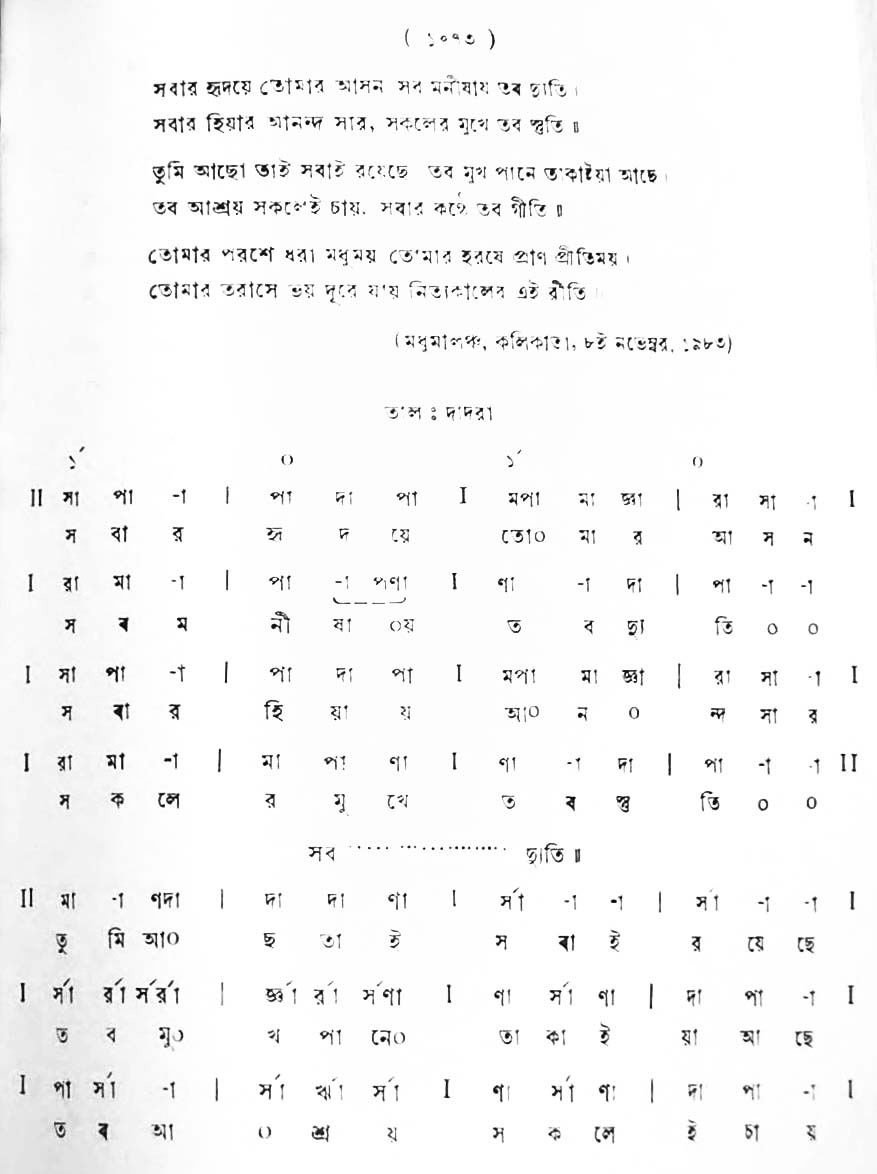 ( ১০৭৩ )
সবার হৃদয়ে তোমার আসন সব মনীষায় তব দ্যুতি।
সবার হিয়ার আনন্দ সার, সকলের মুখে তব স্তুতি॥
তুমি আছো তাই সবাই রয়েছে তব মুখ পানে তাকাইয়া আছে।
তব আশ্রয় সকলেই চায়, সবার কণ্ঠে তব গীতি॥
তোমার পরশে ধরা মধুময় তোমার হরষে প্রাণ প্রীতিময়।
তোমার তরাসে ভয় দূরে যায় নিত্যকালের এই রীতি।
(মধুমালঞ্চ, কলিকাতা, ৮ই নভেম্বর, ১৯৮৩)
তাল ঃ দাদরা
১´ ০ ১´ ০
II সা পা -া | পা দা পা I মপা মা জ্ঞা | রা সা -া I
স বা র হৃ দ য়ে তো০ মা র আ স ন
I রা মা -া | পা -া পণা I ণা -া দা | পা -া -া
স ব ম নী ষা ০য় ত ব দ্যু তি ০ ০
I সা পা -া | পা দা পা I মপা মা জ্ঞা | রা সা -া I
স বা র হি য়া য় আ০ ন ০ ন্দ সা র
I রা মা -া | মা পা ণা I ণা -া দা | পা -া -া II
স ক লে র মু খে ত ব স্তু তি ০ ০
সব ........................ দ্যুতি॥
II মা -া ণদা | দা দা ণা I র্সা -া -া | র্সা -া -া I
তু মি আ০ ছ তা ই স বা ই র য়ে ছে
I র্সা র্রা র্সর্রা | র্জ্ঞা র্রা র্সণা I ণা র্সা ণা | দা পা -া I
ত ব মু০ খ পা নে০ তা কা ই য়া আ ছে
I পা র্সা -া | র্সা র্ঋা র্সা I ণা র্সা ণা | দা পা -া I
ত ব আ ০ শ্র য় স ক লে ই চা য়